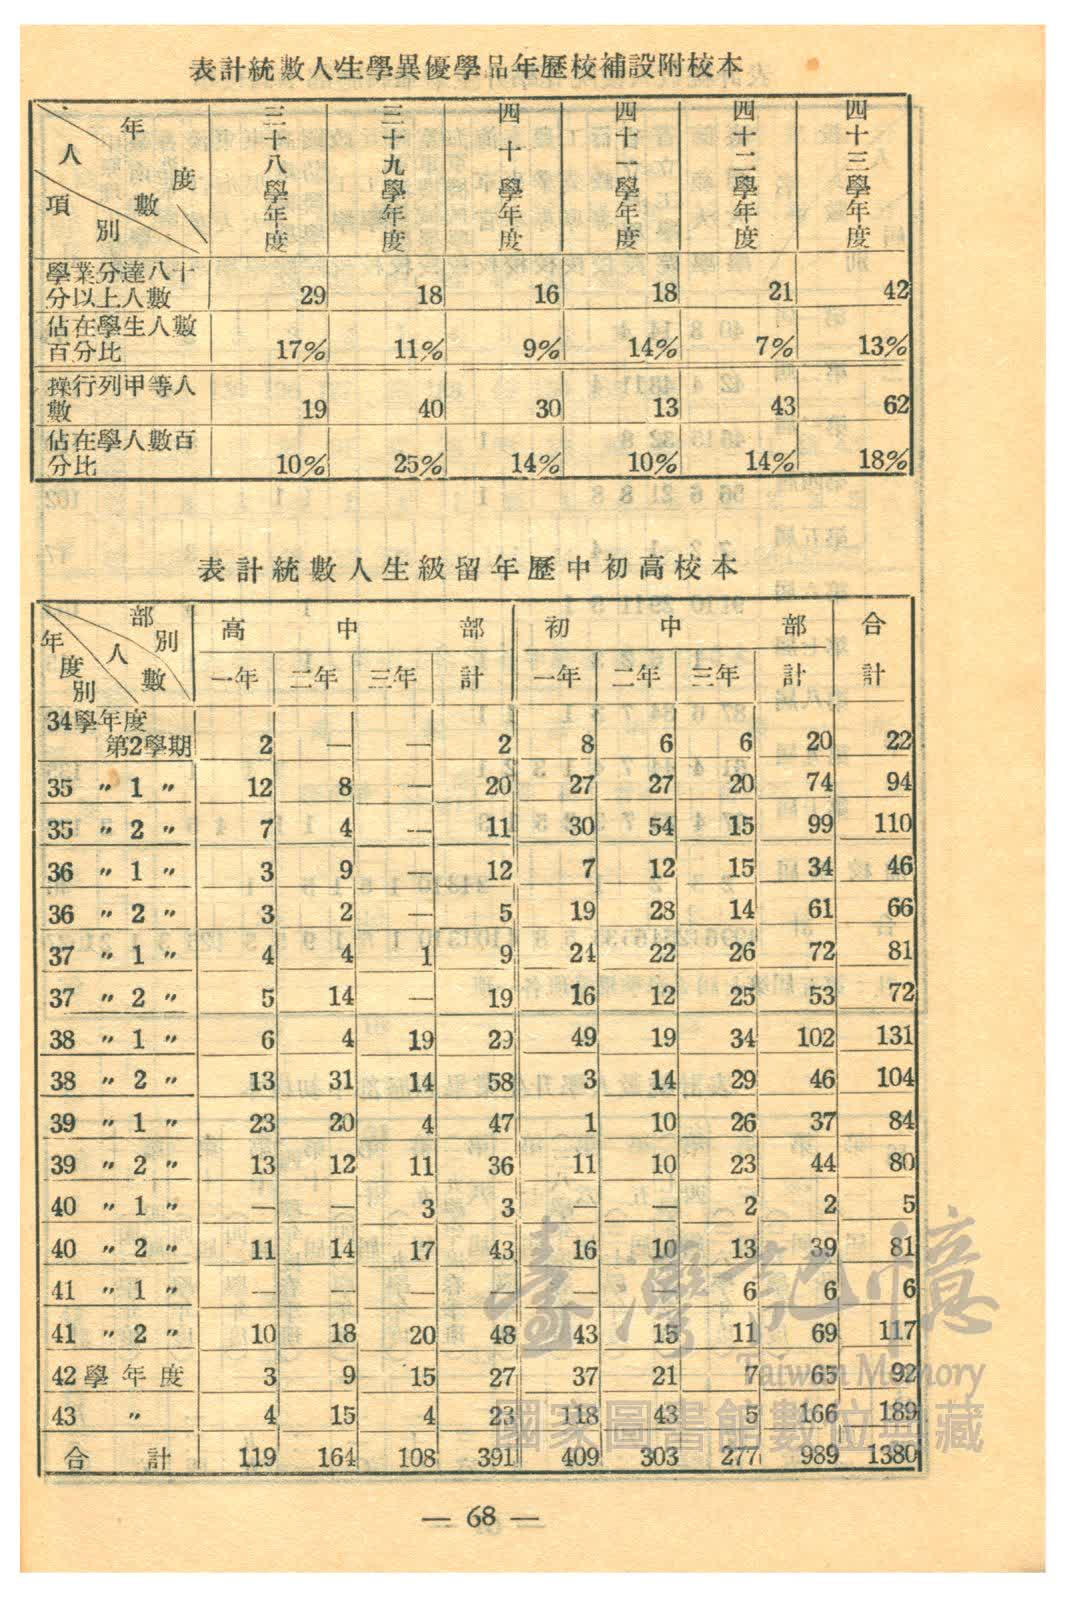 表計統數人生學異優學品年歷校補設附校本
年度 人數 項別 三十八學年度 三十九學年度 四十學年度 四十一學年度 四十二學年度 四十三學年度
學業分達八十分以上人數 29 18 16 18 21 42
佔在學生人數百分比 17% 11% 9% 14% 7% 13%
操行列甲等人數 19 40 30 13 43 62
佔在學人數百分比 10% 25% 14% 10% 14% 18%
表計統數人生級留年歷中初高校本
部別 人數 年度別 高中部 初中部 合計
一年 二年 三年 計 一年 二年 三年 計
34學年度第2學期 2 — — 2 8 6 6 20 22
35 〃 1 〃 12 8 — 20 27 27 20 74 94
35 〃 2 〃 7 4 — 11 30 54 15 99 110
36 〃 1 〃 3 9 — 12 7 12 15 34 46
36 〃 2 〃 3 2 — 5 19 28 14 61 66
37 〃 1 〃 4 4 1 9 24 22 26 72 81
37 〃 2 〃 5 14 — 19 16 12 25 53 72
38 〃 1 〃 6 4 19 29 49 19 34 102 131
38 〃 2 〃 13 31 14 58 3 14 29 46 104
39 〃 1 〃 23 20 4 47 1 10 26 37 84
39 〃 2 〃 13 12 11 36 11 10 23 44 80
40 〃 1 〃 — — 3 3 — — 2 2 5
40 〃 2 〃 11 14 17 43 16 10 13 39 81
41 〃 1 〃 — — — — — — 6 6 6
41 〃 2 〃 10 18 20 48 43 15 11 69 117
42學年度 3 9 15 27 37 21 7 65 92
43 〃 4 15 4 23 118 43 5 166 189
合計 119 164 108 391 409 303 277 989 1380
臺灣記憶
Taiwan Memory
國家圖書館數位典藏
— 68 —